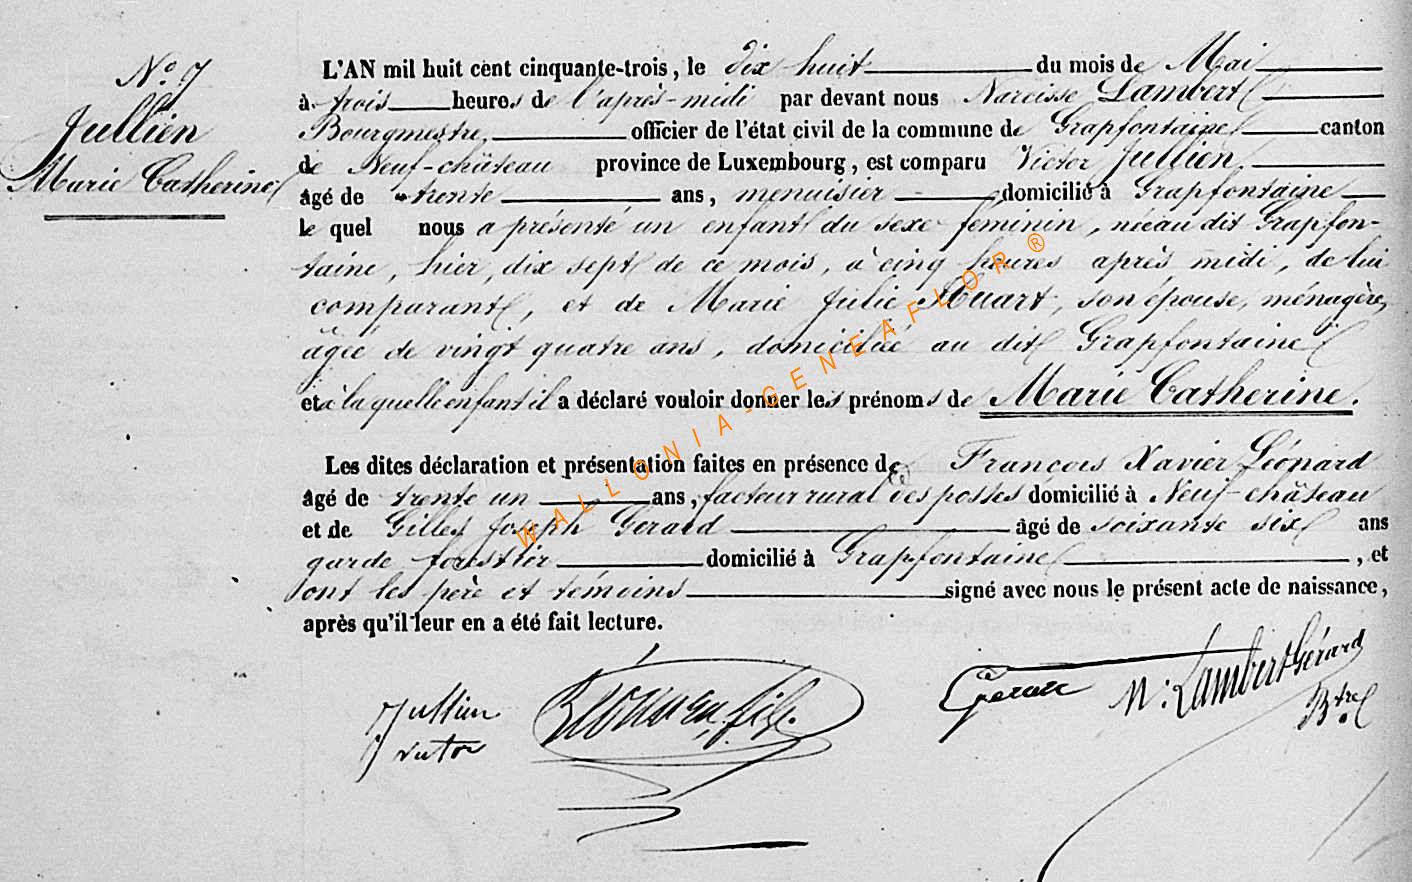 N° 7
Jullien
Marie Catherine
L'AN mil huit cent cinquante-trois, le dix huit du mois de Mai
à trois heures de l'après-midi par devant nous Narcisse Lambert
Bourgmestre officier de l'état civil de la commune de Grapfontaine canton
de Neuf-château province de Luxembourg, est comparu Victor Jullien
âgé de trente ans, menuisier domicilié à Grapfontaine
le quel nous a présenté un enfant du sexe féminin, née au dit Grapfon-
taine, hier, dix sept de ce mois, à cinq heures après midi, de lui
comparant, et de Marie Julie Stuart, son épouse, ménagère,
âgée de vingt quatre ans, domiciliée au dit Grapfontaine
et à la quelle enfant il a déclaré vouloir donner les prénoms de Marie Catherine.
Les dites déclaration et présentation faites en présence de François Xavier Léonard
âgé de trente un ans, facteur rural des postes domicilié à Neuf-château
et de Gilles Joseph Gérard âgé de soixante six ans
garde forestier domicilié à Grapfontaine, et
ont les père et témoins signé avec nous le présent acte de naissance,
après qu'il leur en a été fait lecture.
Jullien
victor
N. Lambert Gérard
Btre
WALLONIA-GENEAFLOR®